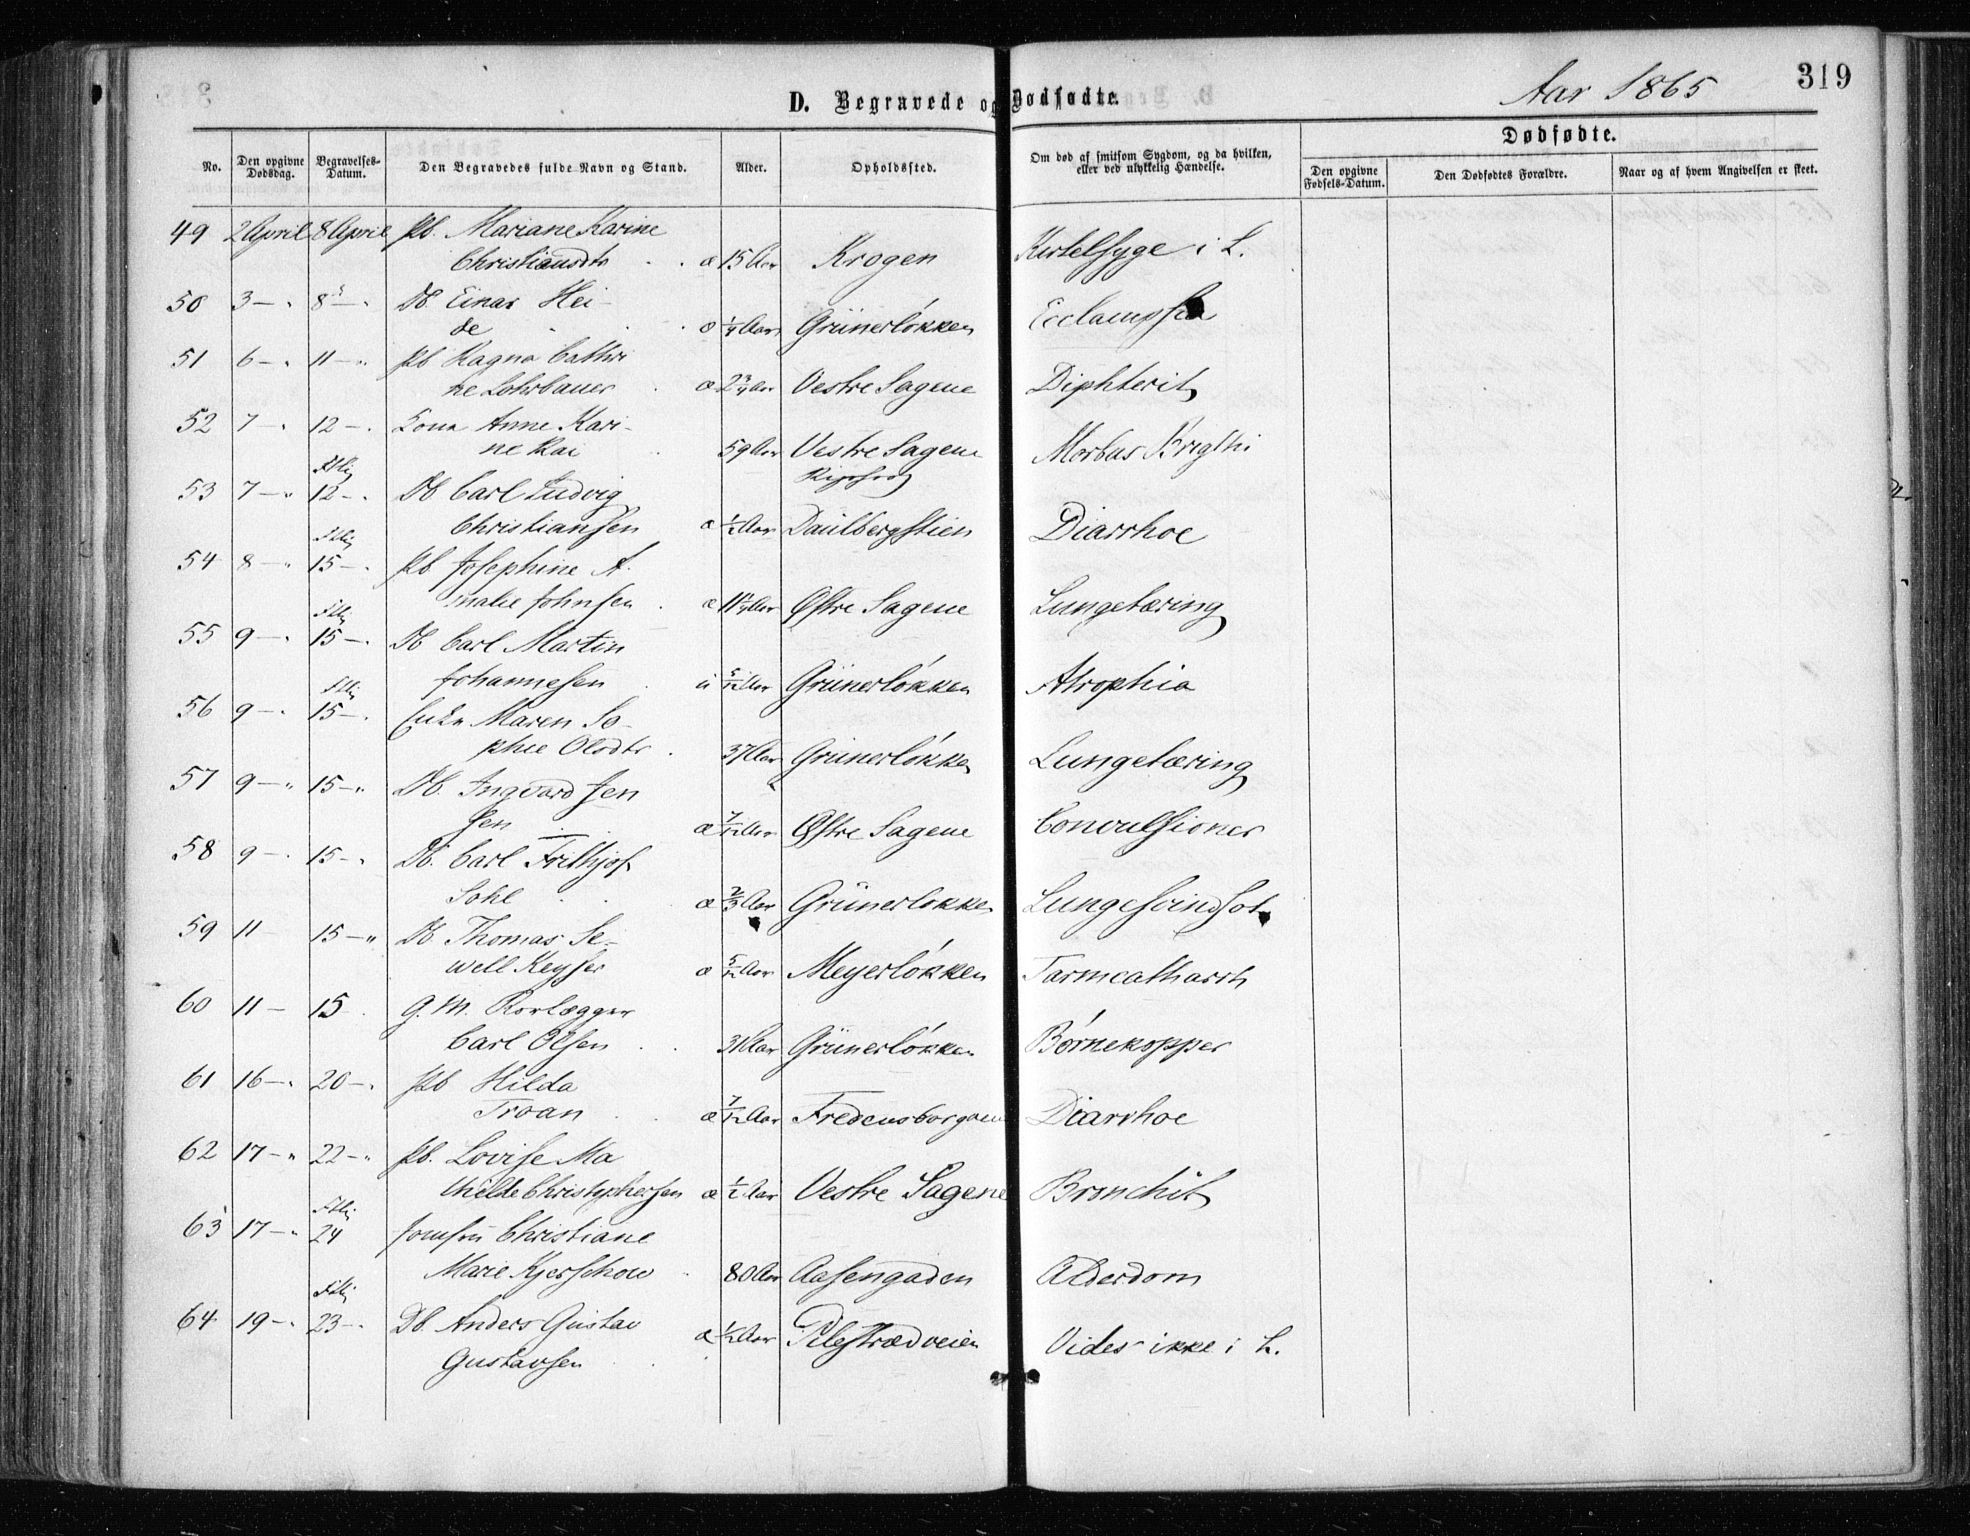 Aar 1865
319
D. Begravede og Dødfødte.
Dødfødte.
No.
Den opgivne Dødsdag.
Begravelses-Datum.
Den Begravedes fulde Navn og Stand.
Alder.
Opholdssted.
Om død af smitsom Sygdom, og da hvilken, eller ved ulykkelig Hændelse.
Den opgivne Fødsels-Datum.
Den Dødfødtes Forældre.
Naar og af hvem Angivelsen er skeet.
49 2 April 8 April Pb. Mariane Karine
Christiansdtr æ 15 Aar Krogen Kirtelsyge i L.
50 3 — " 8 — " Db. Einar Hei-
de æ 1/4 Aar Grünerløkken Ecclampsia
51 6 — " 11 — " Pb Ragna Cathri
ne Lohrbauer æ 2 3/4 Aar Vestre Sagene Diphterit
52 7 — " 12 — " Kona Anne Kari-
ne Kai 59 Aar Vestre Sagene Morbus Brigthi
53 7 — " 12 — " Db Carl Ludvig
Christiansen æ 1/2 Aar Daulbergstien Diarrhoe
54 8 — " 15 — " Pb Josephine A.
malie Johnsen æ 11 1/4 Aar Østre Sagene Lungetæring
55 9 — " 15 — " Db Carl Martin
Johannesen æ 5/12 Aar Grünerløkken Atrophia
56 9 — " 15 — " Enke Maren So-
phie Olsdtr 37 Aar Grünerløkken Lungetæring
57 9 — " 15 — " Db. Ingvard Jen
sen æ 7/12 Aar Østre Sagene Convulsioner
58 9 — " 15 — " Db. Carl Frithjof
Sohl æ 2/3 Aar Grünerløkken Lungesvindsot
59 11 15 — " Db Thomas Se-
well Keyser æ 5/12 Aar Meyerløkken Tarmcatharrh
60 11 — 15 G. M. Rorlægger
Carl Olsen 31 Aar Grünerløkken Børnekopper
61 16 — " 20 — " Pb Hilda
Troan æ 7/12 Aar Fredensborgveien Diarrhoe
62 17 — " 22 — " Pb. Lovise Ma
thilde Christophersen æ 1/2 Aar Vestre Sagene Bronchit
63 17 — " 24 Jomfru Christiane
Marie Kjerschow 80 Aar Aasengaden Alderdom
64 19 — " 23 — " Db. Anders Gustav
Gustavsen æ 1/2 Aar Pilestrædveien Vides ikke i L.